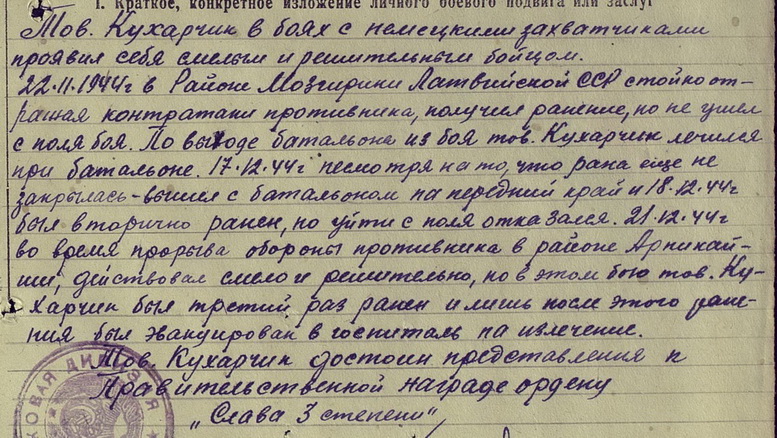 I. Краткое, конкретное изложение личного боевого подвига или заслуг
Тов. Кухарчик в боях с немецкими захватчиками
проявил себя смелым и решительным бойцом.
22.11.1944г в Районе Мозгирики Латвийской ССР стойко от-
ражая контратаки противника, получил ранение, но не ушел
с поля боя. По выходе батальона из боя тов. Кухарчик лечился
при батальоне. 17.12.44г несмотря на то, что рана еще не
закрылась-вышел с батальоном на передний край и 18.12.44г
был вторично ранен, но уйти с поля отказался. 21.12.44г
во время прорыва обороны противника в районе Арникай-
ши, действовал смело и решительно, но в этом бою тов. Ку-
харчик был третий раз ранен и лишь после этого ране-
ния был эвакуирован в госпиталь на излечение.
Тов. Кухарчик достоин представления к
Правительственной награде ордену
„Слава 3 степени"
КОВАЯ ДИВИЗИЯ